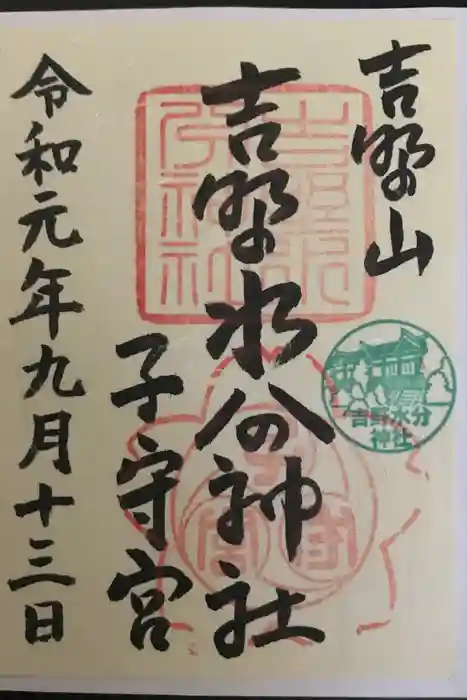 吉野山
吉野水分神社
子守宮
令和元年九月十三日
吉野水分
神社
子守宮